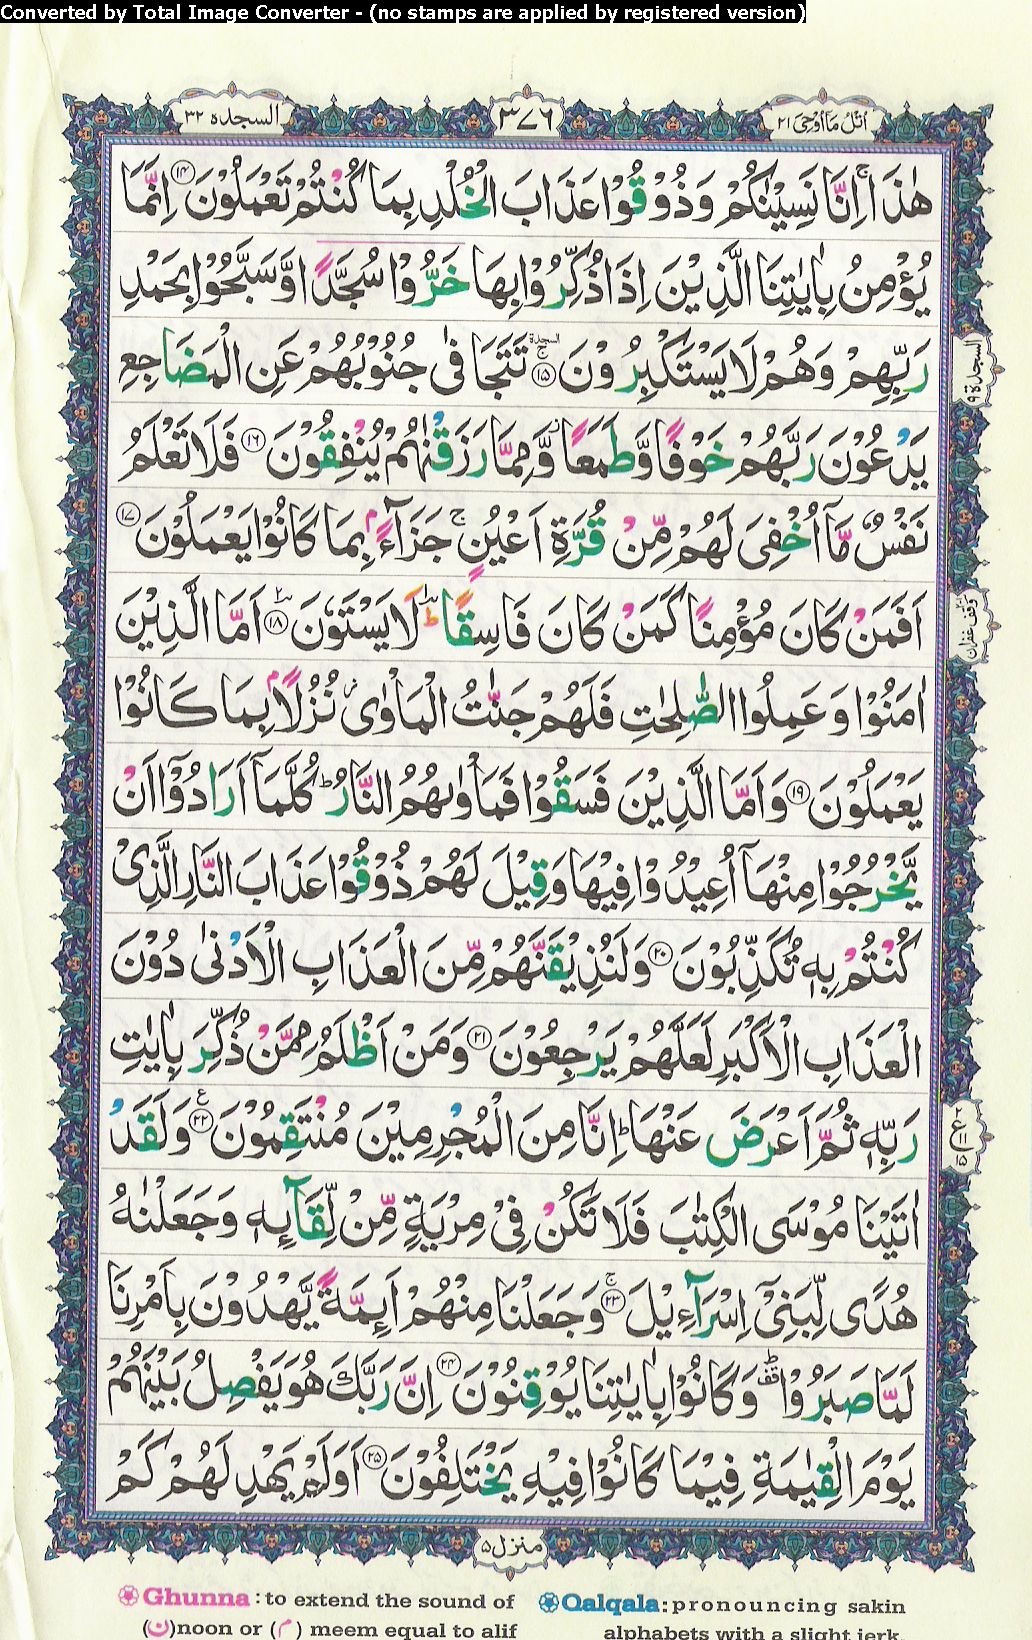 Converted by Total Image Converter - (no stamps are applied by registered version)
اتل ما اوحی ٢١ ٣٧٦ السجدة ٣٢
هٰذَا ۚ اِنَّا نَسِيْنٰكُمْ وَذُوْقُوْا عَذَابَ الْخُلْدِ بِمَا كُنْتُمْ تَعْمَلُوْنَ ۝١٤ اِنَّمَا
يُؤْمِنُ بِاٰيٰتِنَا الَّذِيْنَ اِذَا ذُكِّرُوْا بِهَا خَرُّوْا سُجَّدًا وَّسَبَّحُوْا بِحَمْدِ
رَبِّهِمْ وَهُمْ لَا يَسْتَكْبِرُوْنَ ۝١٥ تَتَجَافٰى جُنُوْبُهُمْ عَنِ الْمَضَاجِعِ
السجدة ٩
يَدْعُوْنَ رَبَّهُمْ خَوْفًا وَّطَمَعًا وَّمِمَّا رَزَقْنٰهُمْ يُنْفِقُوْنَ ۝١٦ فَلَا تَعْلَمُ
نَفْسٌ مَّآ اُخْفِيَ لَهُمْ مِّنْ قُرَّةِ اَعْيُنٍ ۚ جَزَآءًۢ بِمَا كَانُوْا يَعْمَلُوْنَ ۝١٧
اَفَمَنْ كَانَ مُؤْمِنًا كَمَنْ كَانَ فَاسِقًا ؕ لَا يَسْتَوٗنَ ۝١٨ اَمَّا الَّذِيْنَ
وقف غفران
اٰمَنُوْا وَعَمِلُوا الصّٰلِحٰتِ فَلَهُمْ جَنّٰتُ الْمَاْوٰى ز نُزُلًاۢ بِمَا كَانُوْا
يَعْمَلُوْنَ ۝١٩ وَاَمَّا الَّذِيْنَ فَسَقُوْا فَمَاْوٰىهُمُ النَّارُ ؕ كُلَّمَآ اَرَادُوْٓا اَنْ
يَّخْرُجُوْا مِنْهَآ اُعِيْدُوْا فِيْهَا وَقِيْلَ لَهُمْ ذُوْقُوْا عَذَابَ النَّارِ الَّذِيْ
كُنْتُمْ بِهٖ تُكَذِّبُوْنَ ۝٢٠ وَلَنُذِيْقَنَّهُمْ مِّنَ الْعَذَابِ الْاَدْنٰى دُوْنَ
الْعَذَابِ الْاَكْبَرِ لَعَلَّهُمْ يَرْجِعُوْنَ ۝٢١ وَمَنْ اَظْلَمُ مِمَّنْ ذُكِّرَ بِاٰيٰتِ
رَبِّهٖ ثُمَّ اَعْرَضَ عَنْهَا ؕ اِنَّا مِنَ الْمُجْرِمِيْنَ مُنْتَقِمُوْنَ ۝٢٢ وَلَقَدْ
٢ ع ١١ ١٥
اٰتَيْنَا مُوْسَى الْكِتٰبَ فَلَا تَكُنْ فِيْ مِرْيَةٍ مِّنْ لِّقَآئِهٖ وَجَعَلْنٰهُ
هُدًى لِّبَنِيْٓ اِسْرَآءِيْلَ ۝٢٣ وَجَعَلْنَا مِنْهُمْ اَئِمَّةً يَّهْدُوْنَ بِاَمْرِنَا
لَمَّا صَبَرُوْا ؕ وَكَانُوْا بِاٰيٰتِنَا يُوْقِنُوْنَ ۝٢٤ اِنَّ رَبَّكَ هُوَ يَفْصِلُ بَيْنَهُمْ
يَوْمَ الْقِيٰمَةِ فِيْمَا كَانُوْا فِيْهِ يَخْتَلِفُوْنَ ۝٢٥ اَوَلَمْ يَهْدِ لَهُمْ كَمْ
منزل ٥
Ghunna : to extend the sound of
(ن)noon or (م) meem equal to alif
Qalqala: pronouncing sakin
alphabets with a slight jerk.